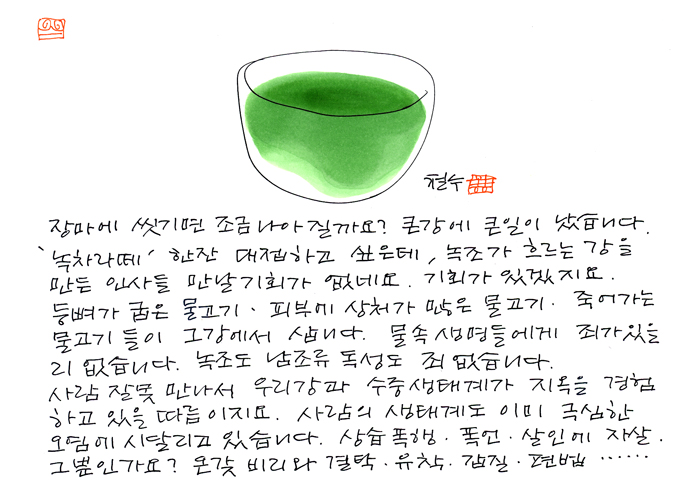 철수
장마에 씻기면 조금 나아질까요? 큰강에 큰일이 났습니다.
'녹차라떼' 한잔 대접하고 싶은데, 녹조가 흐르는 강을
만든 인사들 만날기회가 없네요. 기회가 있겠지요.
등뼈가 굽은 물고기· 피부에 상처가 많은 물고기· 죽어가는
물고기 들이 그강에서 삽니다. 물속 생명들에게 죄가있을
리 없습니다. 녹조도 남조류 독성도 죄 없습니다.
사람 잘못 만나서 우리강과 수중생태계가 지옥을 경험
하고 있을 따름이지요. 사람의 생태계도 이미 극심한
오염에 시달리고 있습니다. 상습폭행·폭언·살인에 자살.
그뿐인가요? 온갖 비리와 결탁·유착·갑질·편법 ……